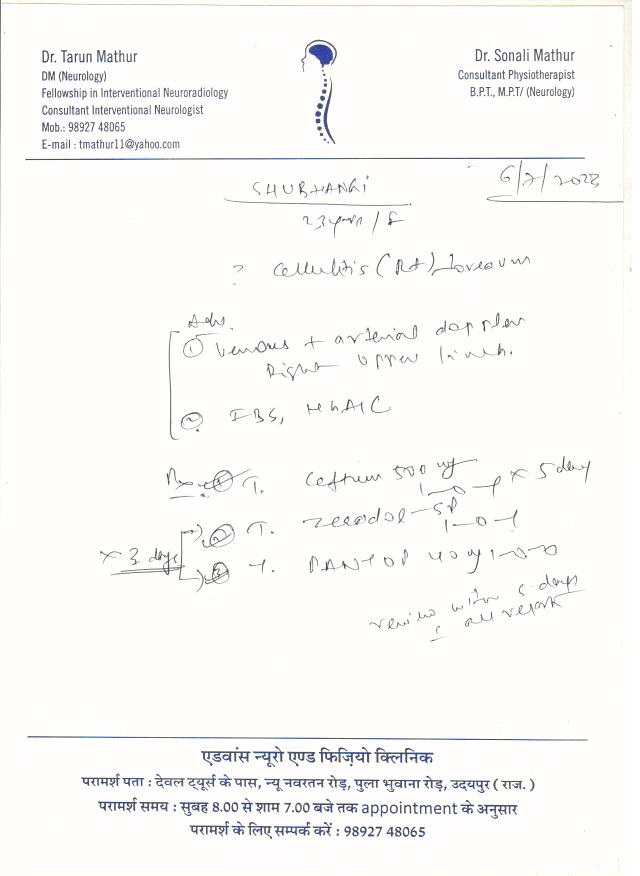 Dr. Tarun Mathur
DM (Neurology)
Fellowship in Interventional Neuroradiology
Consultant Interventional Neurologist
Mob.: 98927 48065
E-mail : tmathur11@yahoo.com
Dr. Sonali Mathur
Consultant Physiotherapist
B.P.T., M.P.T/ (Neurology)
6/7/2023
SHUBHANGI
23 years / F
? Cellulitis (Rt) forearm
Adv.
① Venous + arterial doppler
Right upper limb.
② FBS, HbA1C
Rx ① T. Ceftum 500 mg
1-0-1 x 5 day
② T. Zerodol-SP
1-0-1
x 3 days
③ T. PANTOP 40 mg 1-0-0
review with 5 days
c all report
एडवांस न्यूरो एण्ड फिज़ियो क्लिनिक
परामर्श पता : देवल ट्यूर्स के पास, न्यू नवरतन रोड़, पुला भुवाना रोड़, उदयपुर ( राज. )
परामर्श समय : सुबह 8.00 से शाम 7.00 बजे तक appointment के अनुसार
परामर्श के लिए सम्पर्क करें : 98927 48065